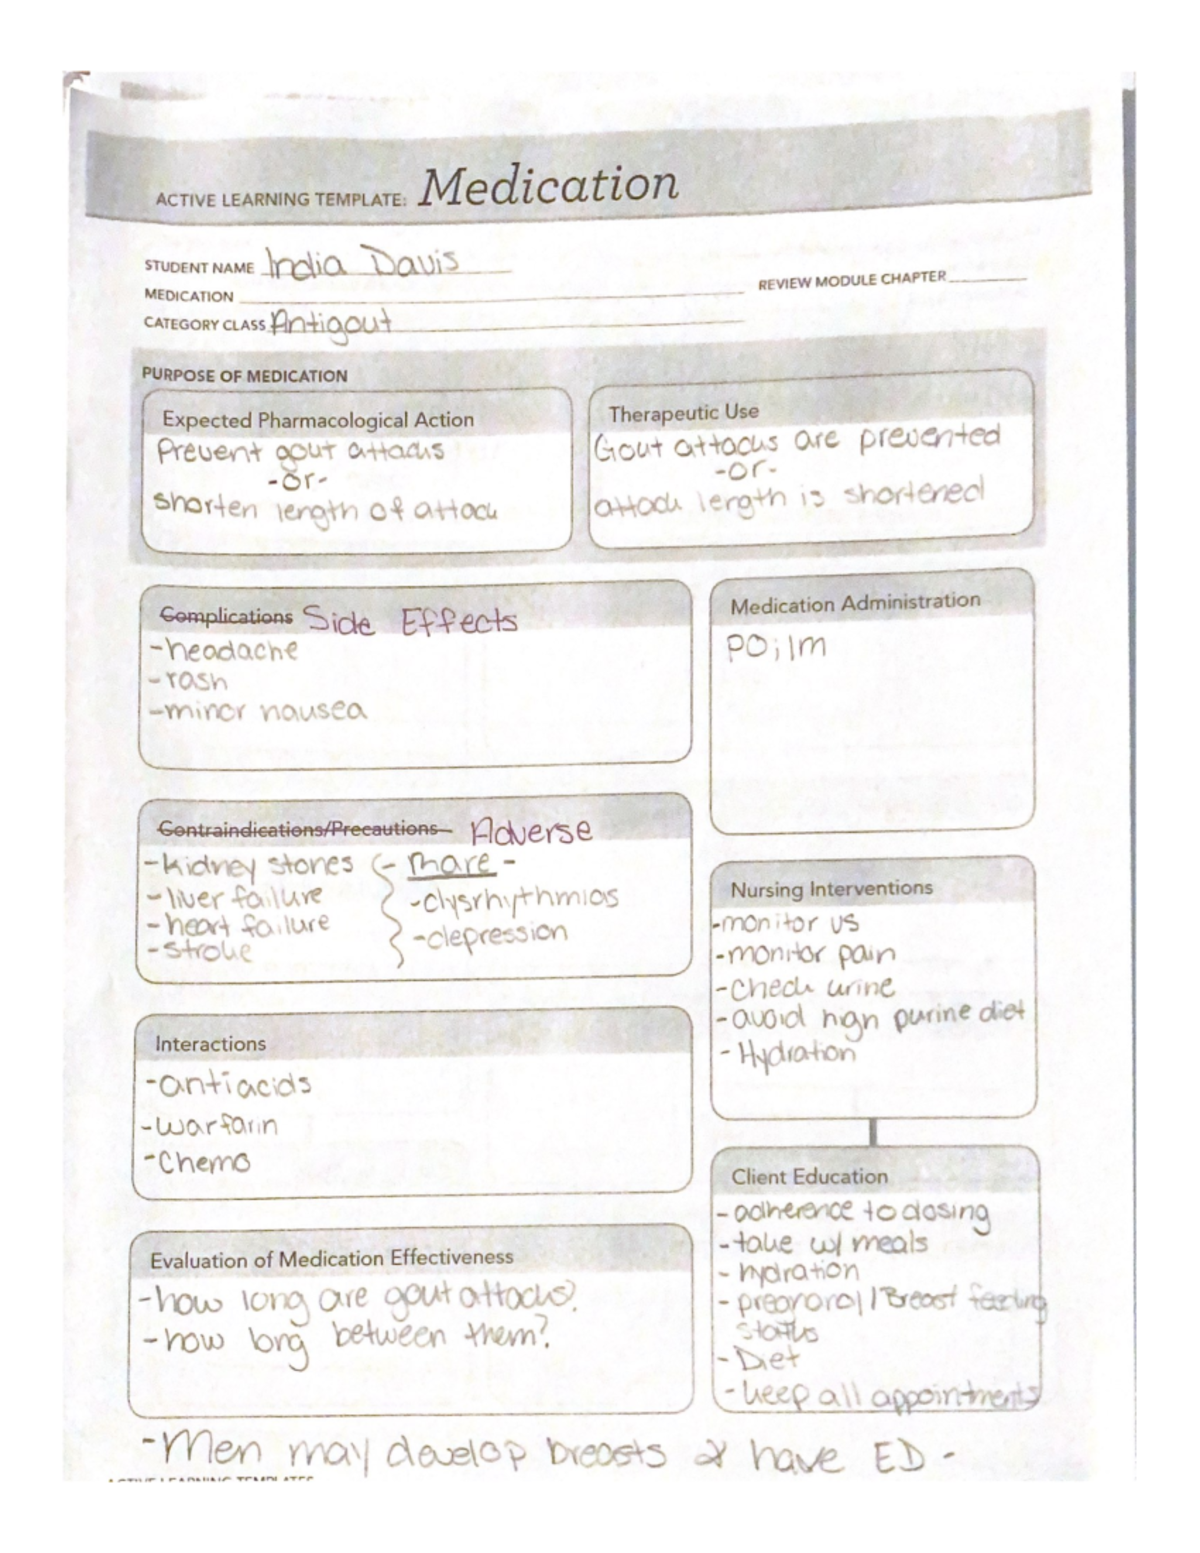 ACTIVE LEARNING TEMPLATE: Medication
STUDENT NAME India Davis
MEDICATION
REVIEW MODULE CHAPTER
CATEGORY CLASS Antigout
PURPOSE OF MEDICATION
Expected Pharmacological Action
Prevent gout attacks
-or-
shorten length of attack
Therapeutic Use
Gout attacks are prevented
-or-
attack length is shortened
Complications Side Effects
-headache
-rash
-minor nausea
Medication Administration
PO; IM
Contraindications/Precautions Adverse
-kidney stones
-liver failure
-heart failure
-stroke
- more -
-dysrhythmias
-depression
Nursing Interventions
-monitor vs
-monitor pain
-check urine
-avoid high purine diet
-Hydration
Interactions
-antiacids
-warfarin
-Chemo
Client Education
-adherence to dosing
-take w/ meals
-hydration
-/Breast feeding
status
-Diet
-keep all appointments
Evaluation of Medication Effectiveness
-how long are gout attacks?
-how long between them?
-Men may develop breasts & have ED-
ACTIVE LEARNING TEMPLATES